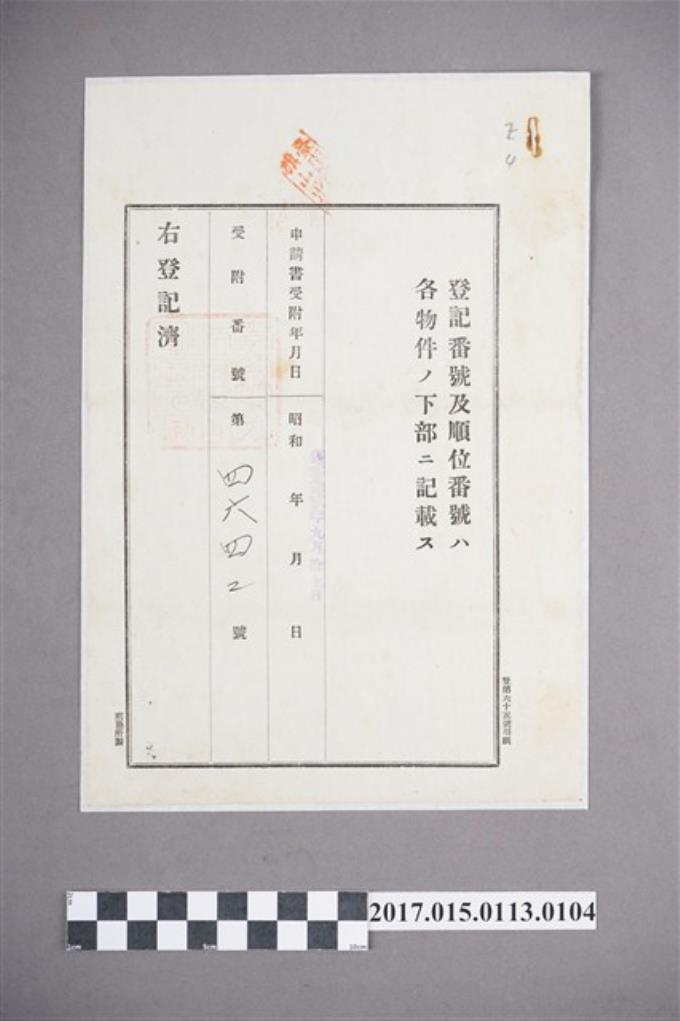 登記番號及順位番號ハ
各物件ノ下部ニ記載ス
申請書受附年月日
昭和 年 月 日
受附番號
第 四六四二 號
右登記濟
2017.015.0113.0104